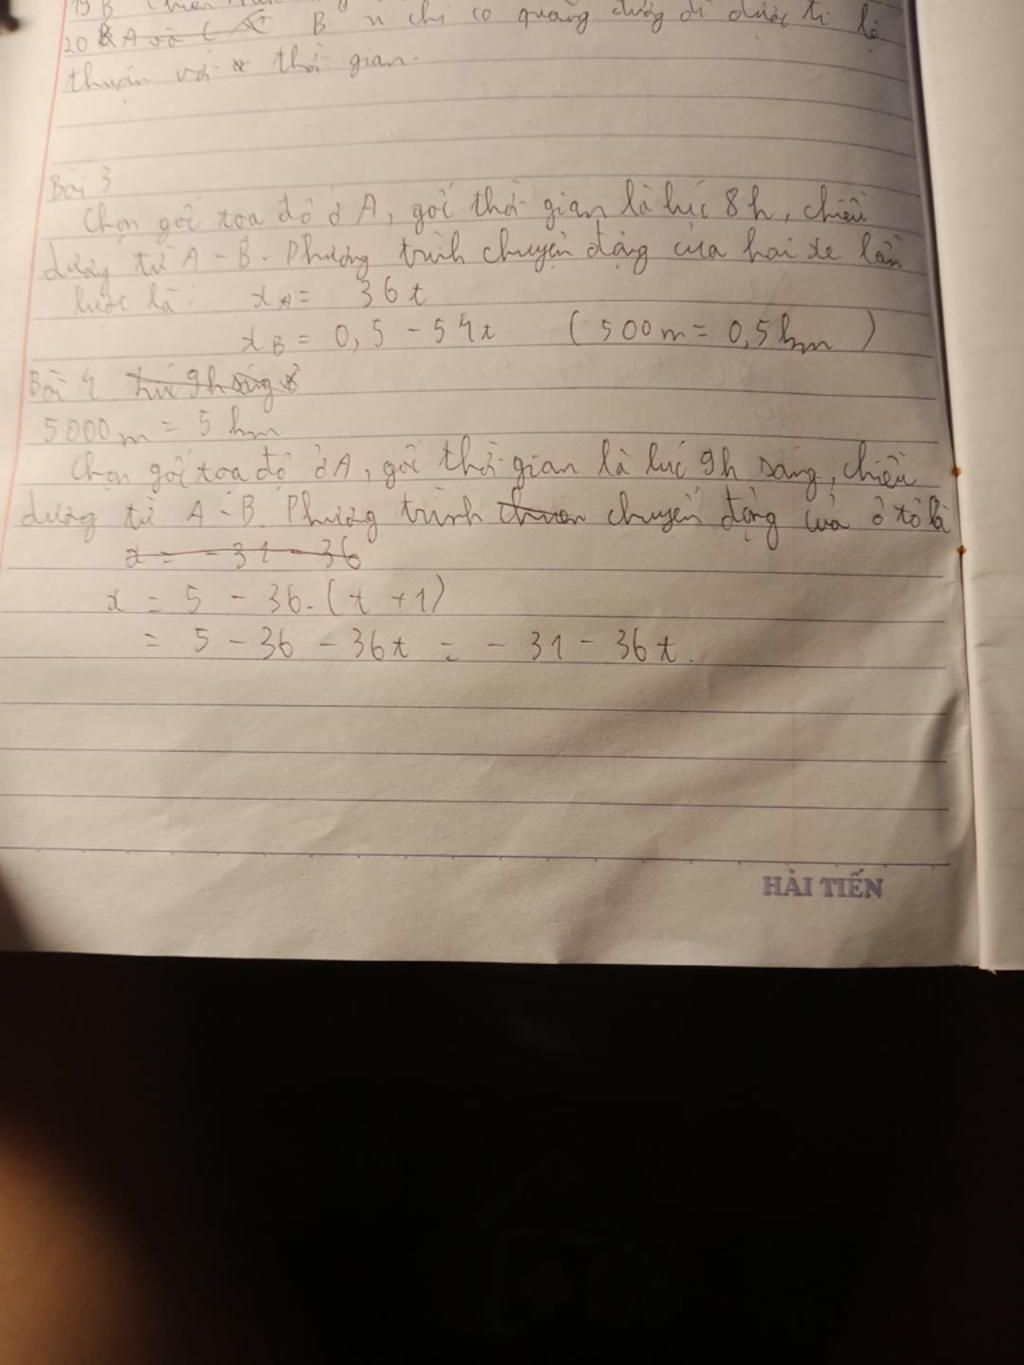 19 B
20 A và C B vì chỉ có quãng đường đi được tỉ lệ
thuận với thời gian.
Bài 3
Chọn gốc toạ độ ở A, gốc thời gian là lúc 8h, chiều
dương từ A - B. Phương trình chuyện động của hai xe lần
lượt là: x A = 36t
x B = 0,5 - 54t (500m = 0,5km)
Bài 4 từ 9h sáng
5000m = 5 km
Chọn gốc toạ độ ở A, gốc thời gian là lúc 9h sáng, chiều
dương từ A - B. Phương trình chuyển động của ô tô là
x = - 31 - 36
x = 5 - 36.(t + 1)
= 5 - 36 - 36t = - 31 - 36t.
HẢI TIẾN